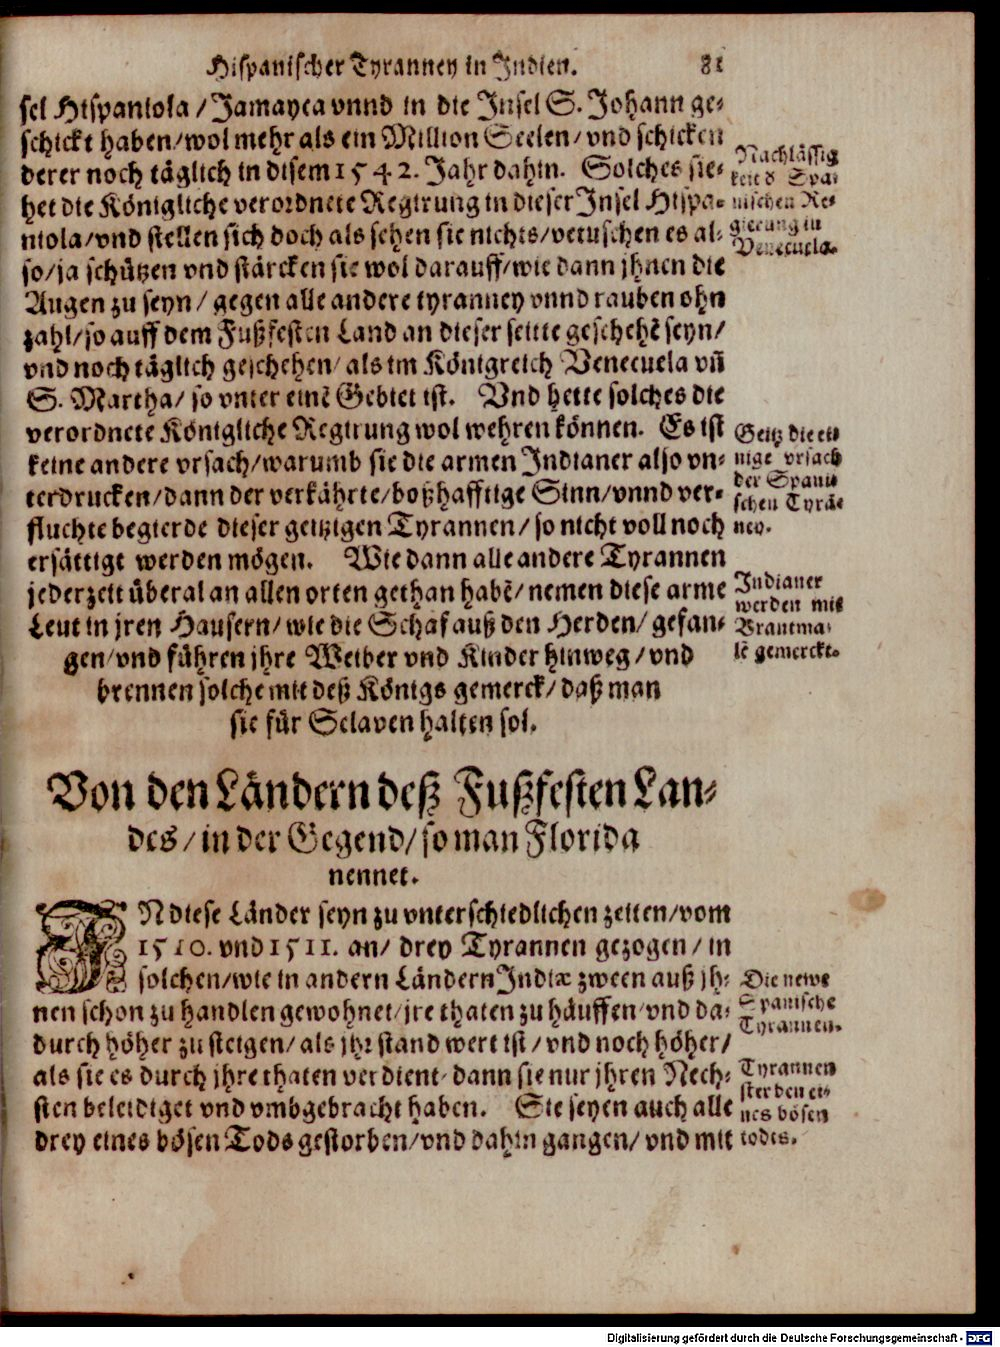 Hispanischer Tyranney in Indien. 81
sel Hispaniola / Jamayca vnnd in die Insel S. Johann ge-
schickt haben/wol mehr als ein Million Seelen/vnd schicken
derer noch täglich in disem 1542. Jahr dahin. Solches sie-
het die Königliche verordnete Regirung in dieser Insel Hispa-
niola/vnd stellen sich doch als sehen sie nichts/vetuschen es al-
so/ja schützen vnd stärcken sie wol darauff/wie dann jhnen die
Augen zu seyn / gegen alle andere tyranney vnnd rauben ohn
zahl/so auff dem Fußfesten Land an dieser seitte geschehẽ seyn/
vnd noch täglich geschehen/ als im Königreich Venecuela vñ
S. Martha/ so vnter einẽ Gebiet ist. Vnd hette solches die
verordnete Königliche Regirung wol wehren können. Es ist
keine andere vrsach/warumb sie die armen Indianer also vn-
terdrucken/dann der verkährte/boßhafftige Sinn/vnnd ver-
fluchte begierde dieser geitzigen Tyrannen/ so nicht voll noch
ersättigt werden mögen. Wie dann alle andere Tyrannen
jederzeit überal an allen orten gethan habẽ/ nemen diese arme
Leut in jren Hausern/ wie die Schaf auß den Herden/ gefan-
gen/vnd führen jhre Weiber vnd Kinder hinweg/vnd
brennen solche mit deß Königs gemerck/ daß man
sie für Sclaven halten sol.
Nachlässig
keit d Spa-
nischen Re-
gierung in
Venecuela.
Geitz die ei-
nige vrsach
der Spani-
schen Tyrã-
ney.
Indianer
werden mit
Brantma-
lẽ gemerckt.
Von den Ländern deß Fußfesten Lan-
des/in der Gegend/so man Florida
nennet.
IN diese Länder seyn zu vnterschiedlichen zeiten/vom
1510. vnd 1511. an/ drey Tyrannen gezogen / in
solchen/wie in andern Ländern Indiæ zween auß jh-
nen schon zu handlen gewohnet/jre thaten zu häuffen/vnd da-
durch höher zu steigen/ als jhr stand wert ist / vnd noch höher/
als sie es durch jhre thaten verdient/ dann sie nur jhren Nech-
sten beleidiget vnd vmbgebracht haben. Sie seyen auch alle
drey eines bösen Tods gestorben/vnd dahin gangen/ vnd mit
Die newe
Spanische
Tyrannen.
Tyrannen
sterden ei-
nes bösen
todes.
Digitalisierung gefördert durch die Deutsche Forschungsgemeinschaft - DFG